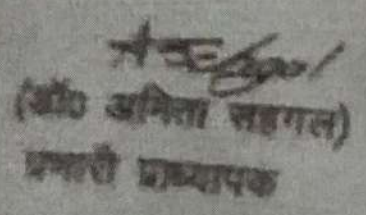 (डॉ० अमिता सहगल)
प्रभारी प्राध्यापक